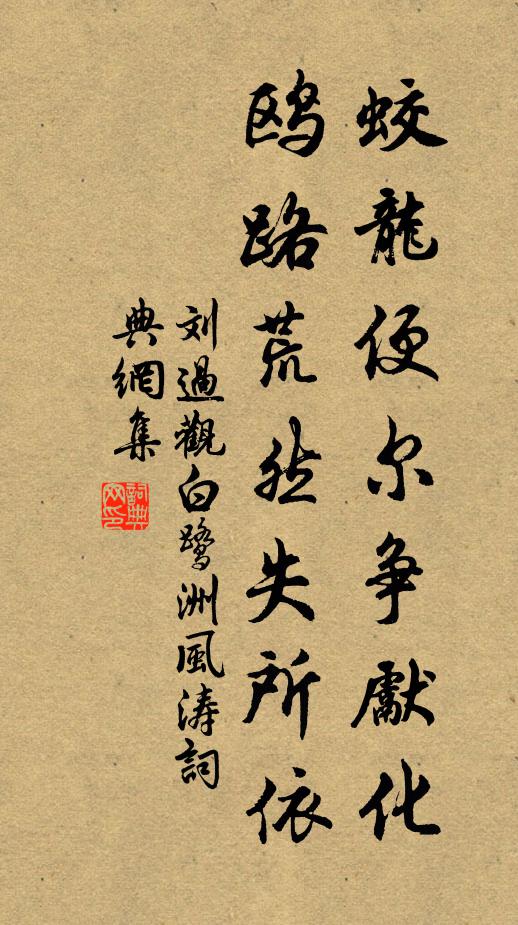 蛟龍便尔争獻化
鸥路荒然失所依
刘過觀白鹭洲風涛詞
典網集
詞典
网印